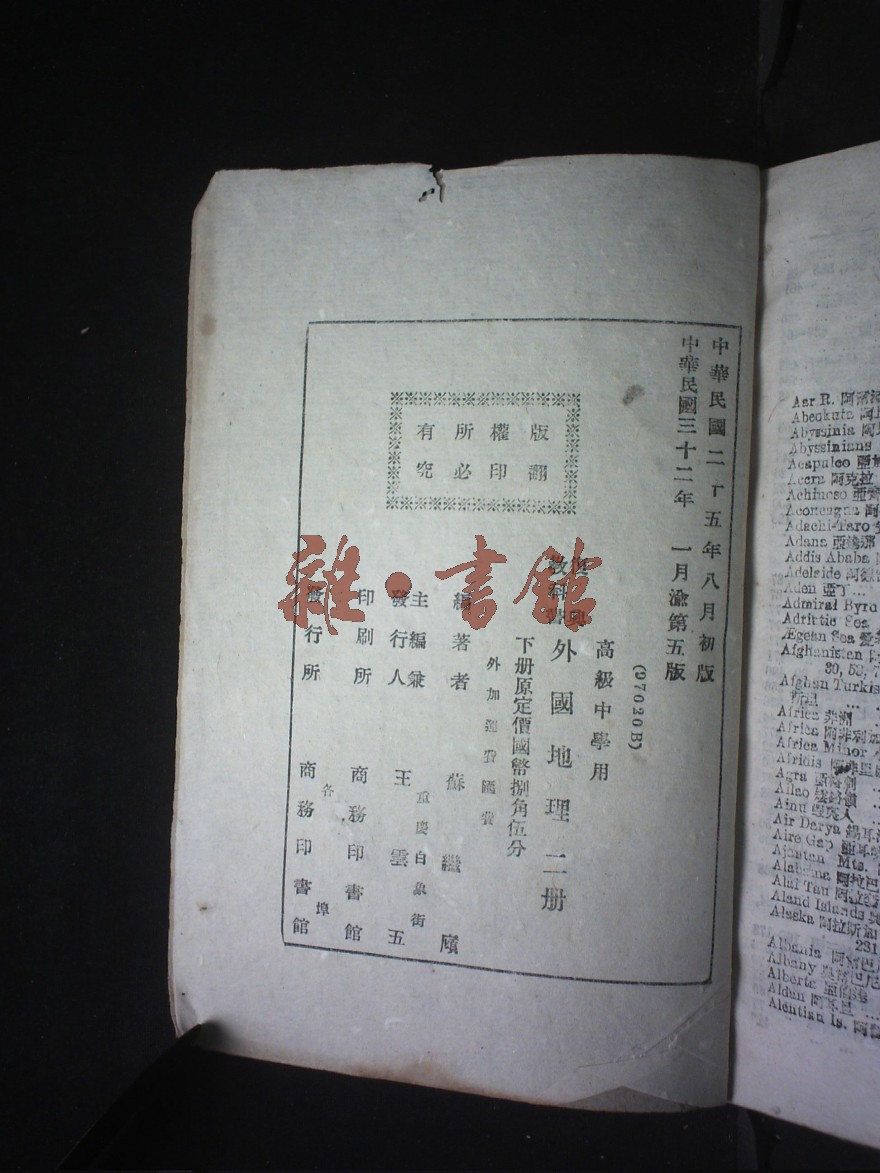 中華民國二十五年八月初版
中華民國三十二年一月渝第五版
(97020B)
高級中學用
復興
教科書
外國地理二册
下册原定價國幣捌角伍分
外加運費匯費
版權所有
翻印必究
編著者 蘇繼廎
主編兼
發行人 王雲五
重慶白象街
印刷所 商務印書館
各埠
發行所 商務印書館
雜·書館
Aar R.
Abeokuta
Abyssinia
Abyssinians
Acapulco
Accra 阿克拉
Achinese
Aconcagua
Adachi-Taro
Adana
Addis Ababa
Adelaide
Aden 亞丁
Admiral Byrd
Adriatic Sea
Ægean Sea
Afghanistan
Afghan Turkis
Africa 非洲
Africa 阿非利加
Africa Minor
Afridis
Agra
Ainu
Air Darya
Aire Gap
Ajantan Mts.
Alabama
Alai Tau
Aland Islands
Alaska 阿拉斯加
231
Albania
Albany
Alberta
Aldan
Aleutian Is.